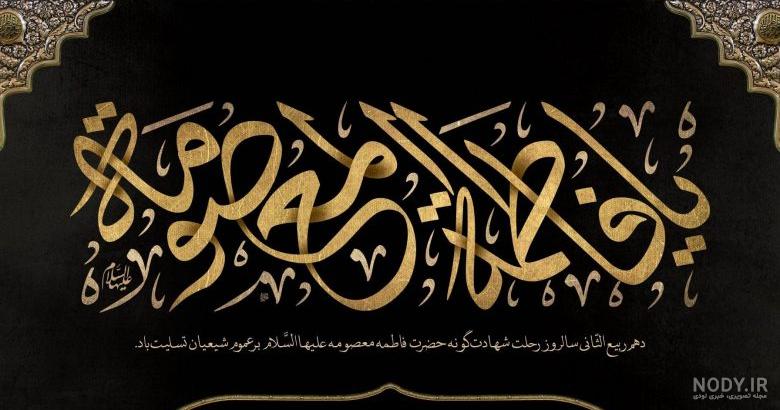 یا فاطمة المعصومة
علیها السلام
دهم ربیع الثّانی سالروز رحلت شهادت‌گونه حضرت فاطمه معصومه علیها السَّلام بر عموم شیعیان تسلیت باد.
NODY.IR
مجله تصویری، خبری نودی